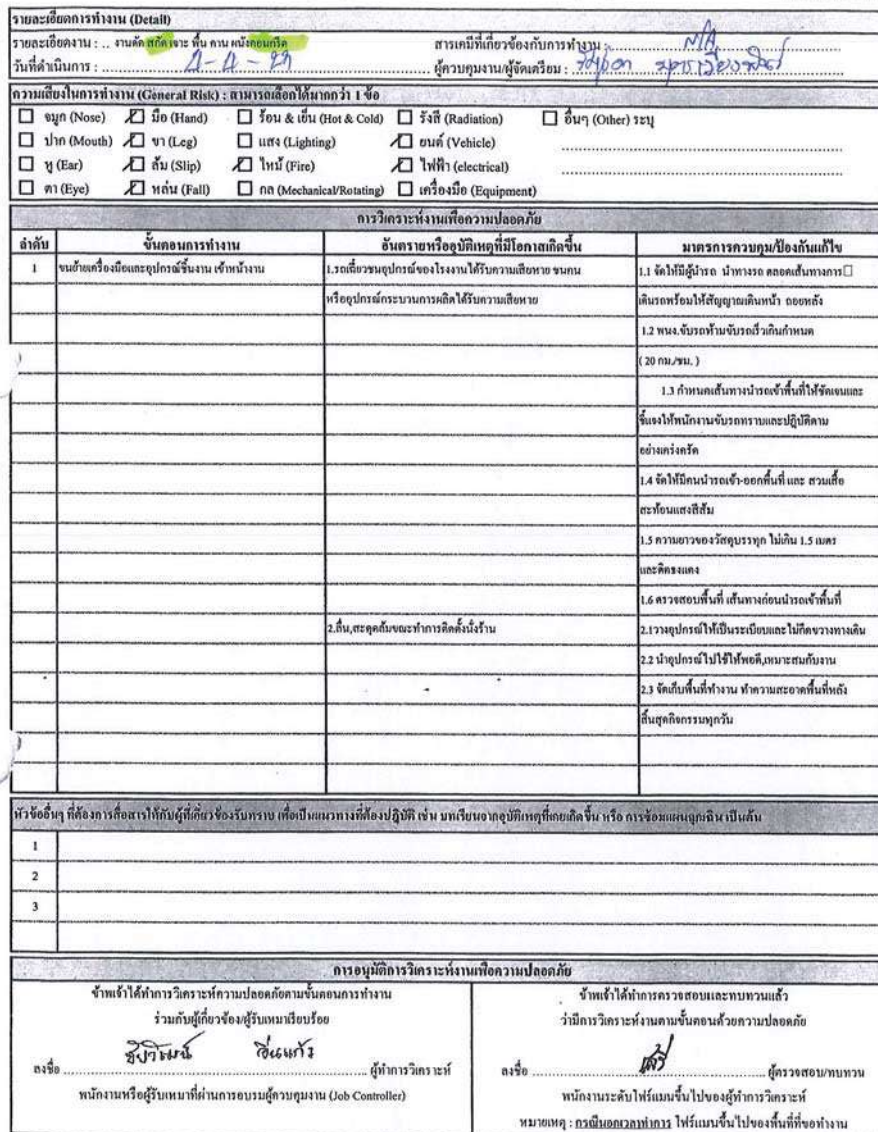 รายละเอียดการทำงาน (Detail)
รายละเอียดงาน : .. งานตัด สกัด เจาะ พื้น คาน ผนังคอนกรีต สารเคมีที่เกี่ยวข้องกับการทำงาน : N/A
วันที่ดำเนินการ : ผู้ควบคุมงาน/ผู้จัดเตรียม :
ความเสี่ยงในการทำงาน (General Risk) : สามารถเลือกได้มากกว่า 1 ข้อ
จมูก (Nose) มือ (Hand) ร้อน & เย็น (Hot & Cold) รังสี (Radiation) อื่นๆ (Other) ระบุ
ปาก (Mouth) ขา (Leg) แสง (Lighting) ยนต์ (Vehicle)
หู (Ear) ล้ม (Slip) ไหม้ (Fire) ไฟฟ้า (electrical)
ตา (Eye) หล่น (Fall) กล (Mechanical/Rotating) เครื่องมือ (Equipment)
การวิเคราะห์งานเพื่อความปลอดภัย
ลำดับ ขั้นตอนการทำงาน อันตรายหรืออุบัติเหตุที่มีโอกาสเกิดขึ้น มาตรการควบคุม/ป้องกันแก้ไข
1 ขนย้ายเครื่องมือและอุปกรณ์ชิ้นงาน เข้าหน้างาน 1.รถเฉี่ยวชนอุปกรณ์ของโรงงานได้รับความเสียหาย ชนคน 1.1 จัดให้มีผู้นำรถ นำทางรถ ตลอดเส้นทางการ□
หรืออุปกรณ์กระบวนการผลิตได้รับความเสียหาย เดินรถพร้อมให้สัญญาณเดินหน้า ถอยหลัง
1.2 พนง.ขับรถห้ามขับรถเร็วเกินกำหนด
( 20 กม./ชม. )
1.3 กำหนดเส้นทางนำรถเข้าพื้นที่ให้ชัดเจนและ
ชี้แจงให้พนักงานขับรถทราบและปฏิบัติตาม
อย่างเคร่งครัด
1.4 จัดให้มีคนนำรถเข้า-ออกพื้นที่ และ สวมเสื้อ
สะท้อนแสงสีส้ม
1.5 ความยาวของวัสดุบรรทุก ไม่เกิน 1.5 เมตร
และติดธงแดง
1.6 ตรวจสอบพื้นที่ เส้นทางก่อนนำรถเข้าพื้นที่
2.ลื่น,สะดุดล้มขณะทำการติดตั้งนั่งร้าน 2.1วางอุปกรณ์ให้เป็นระเบียบและไม่กีดขวางทางเดิน
2.2 นำอุปกรณ์ไปใช้ให้พอดี,เหมาะสมกับงาน
2.3 จัดเก็บพื้นที่ทำงาน ทำความสะอาดพื้นที่หลัง
สิ้นสุดกิจกรรมทุกวัน
หัวข้ออื่นๆ ที่ต้องการสื่อสารให้กับผู้ที่เกี่ยวข้องรับทราบ เพื่อเป็นแนวทางที่ต้องปฏิบัติ เช่น บทเรียนจากอุบัติเหตุที่เคยเกิดขึ้น หรือ การซ้อมแผนฉุกเฉิน เป็นต้น
1
2
3
การอนุมัติการวิเคราะห์งานเพื่อความปลอดภัย
ข้าพเจ้าได้ทำการวิเคราะห์ความปลอดภัยตามขั้นตอนการทำงาน ข้าพเจ้าได้ทำการตรวจสอบและทบทวนแล้ว
ร่วมกับผู้เกี่ยวข้อง/ผู้รับเหมาเรียบร้อย ว่ามีการวิเคราะห์งานตามขั้นตอนด้วยความปลอดภัย
ลงชื่อ ผู้ทำการวิเคราะห์ ลงชื่อ ผู้ตรวจสอบ/ทบทวน
พนักงานหรือผู้รับเหมาที่ผ่านการอบรมผู้ควบคุมงาน (Job Controller) พนักงานระดับโฟร์แมนขึ้นไปของผู้ทำการวิเคราะห์
หมายเหตุ : กรณีนอกเวลาทำการ โฟร์แมนขึ้นไปของพื้นที่ที่ขอทำงาน